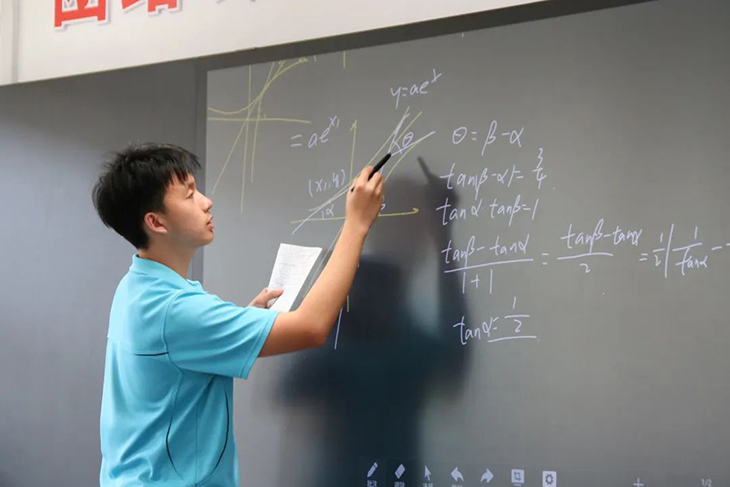 团结
y=ae^x
=ae^{x₁}
θ
(x₁,y₁)
α
θ=β-α
tan(β-α)=3/4
tanα tanβ=1
(tanβ-tanα)/(1+1) = (tanβ-tanα)/2 = 1/2|1/tanα -
tanα=1/2
1/2